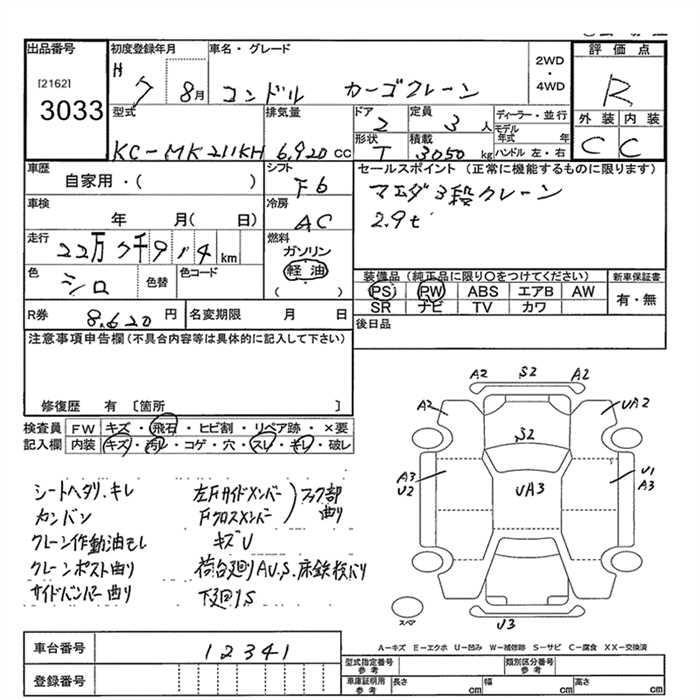 出品番号
[2162]
3033
初度登録年月
H 7 8月
車名・グレード
コンドル カーゴクレーン
2WD
・
4WD
評価点
R
外装 内装
C C
型式
KC-MK211KH
排気量
6,920 CC
ドア
2
定員
3 人
ディーラー・並行
モデル年式 年
ハンドル 左・右
形状
T
積載
3050 kg
車歴
自家用・( )
シフト
F6
セールスポイント (正常に機能するものに限ります)
マエダ3段クレーン
2.9t
車検
年 月( 日)
冷房
AC
走行
22万7千9114km
燃料
ガソリン
軽油
( )
色
シロ
色替
色コード
装備品 (純正品に限り○をつけてください)
PS PW ABS エアB AW
SR ナビ TV カワ
新車保証書
有・無
R券
8,620 円
名変期限 月 日
後日品
注意事項申告欄(不具合内容等は具体的に記入して下さい)
修復歴 有 〔箇所 〕
検査員
記入欄
FW キズ・飛石・ヒビ割・リペア跡・×要
内装 キズ・汚レ・コゲ・穴・スレ・キレ・破レ
シートヘタリ.キレ
カンバン
クレーン作動油モレ
クレーンポスト曲り
サイドバンパー曲り
左Fサイドメンバー
Fクロスメンバー
フック部
曲り
キズU
荷台廻りAU.S.床鉄板バリ
下廻りS
A2 S2 A2
A2 UA2
S2
A3
U2
UA3
U1
A3
スペア
U3
A-キズ E-エクボ U-凹み W-補修跡 S-サビ C-腐食 XX-交換済
車台番号
12341
登録番号
型式指定番号
参考
類別区分番号
参考
車庫証明用
参考
長さ cm
幅 cm
高さ cm